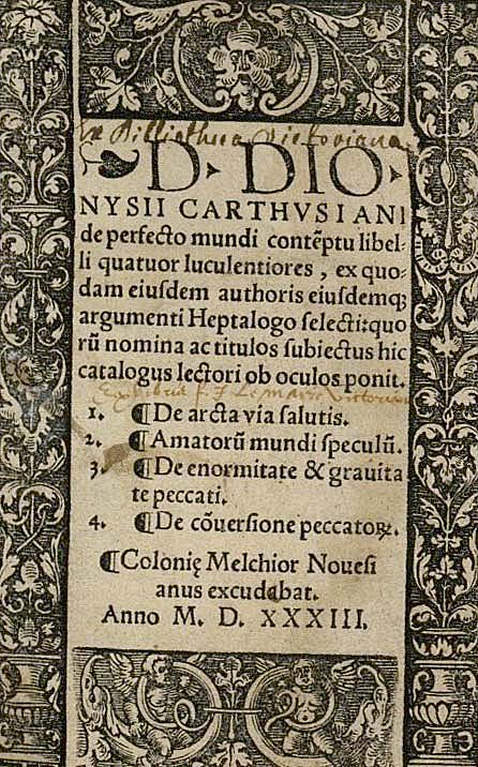 Ex Bibliotheca Victoriana
❧D. DIO.
NYSII CARTHVSIANI
de perfecto mundi contẽptu libel-
li quatuor luculentiores, ex quo-
dam eiuſdem authoris eiuſdemq́;
argumenti Heptalogo ſelecti: quo
rũ nomina ac titulos ſubiectus hic
catalogus lectori ob oculos ponit.
1. ¶De arcta via ſalutis.
2. ¶Amatorũ mundi ſpeculũ.
3. ¶De enormitate & grauita
te peccati.
4. ¶De cõuerſione peccatoꝝ.
¶Colonię Melchior Noueſi
anus excudebat.
Anno M. D. XXXIII.